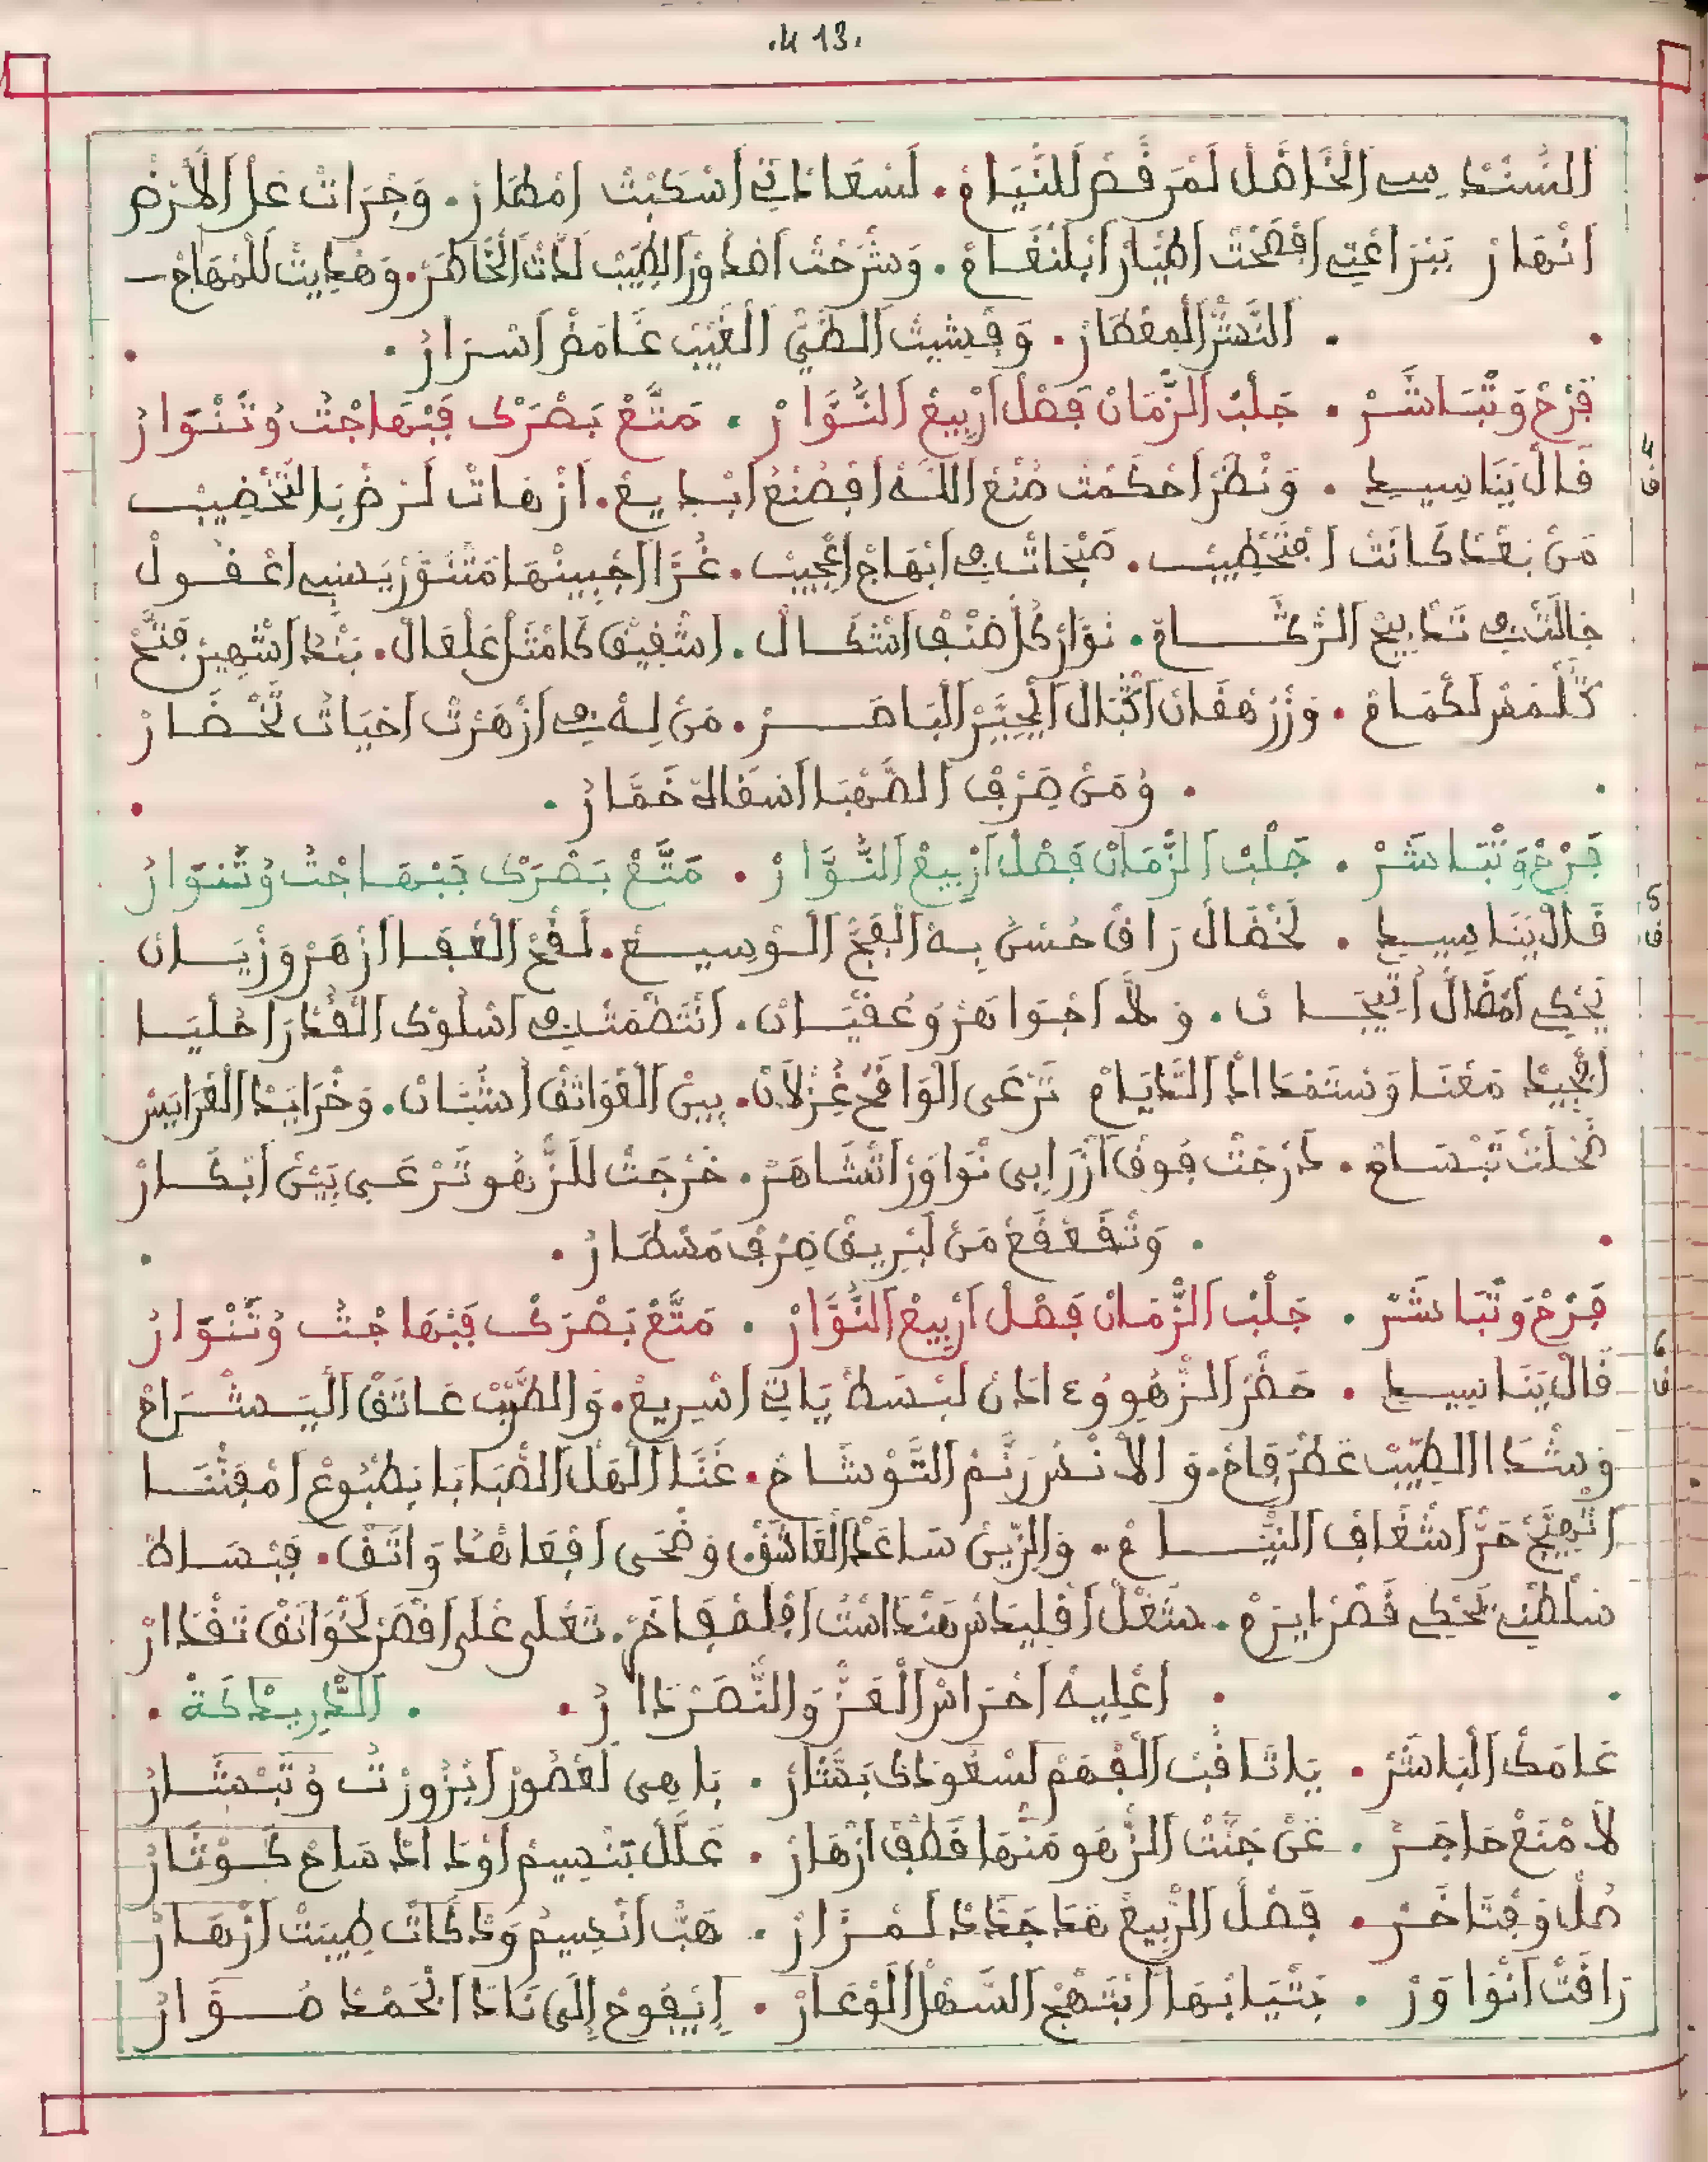 .413.
السّندسي الخاضل لمرقّم للنّيام. لسعادتي اسكبت امطار. وجرات عل الارض
انهار بيراعتي افصحت اطيار ابلنغام. وشرحت اصدور الطيب لذّت الخاطر. وهديت للمهاج
. النّشر المعطار. وفشيت الطيّ الغيب غامض اسرار.
فرح وتباشر . جلب الزّمان فصل اربيع النّوّار . متّع بصرك فبهاجت وتنوار
4 قال بيناسيد . ونظر احكمت صنع الله افصنع ابديع. ازهات لرض بالتخضيب
من بعد كانت افتخطيب. صبخات في ابهاج اعجيب. غرّا اجبينها متنور يسبي اعقول
جالت في تدابيج الرّكام. نوّار كل صنف اشكال. اشقيق كامثل علعال. بند اشهير فتح
كلّمفر لكمام. وزرهفان اقبال ايحيّر الباصر. من له في ازهرت احيات لخضار
. ومن صرف الصّهبا اسقاله خمّار .
فرح وتباشر . جلب الزّمان فصل اربيع النّوّار . متّع بصرك فبهاجت وتنوار
5 قال بيناسيد . لخضال راق حسن به الفجّ الوسيع. لقح العفا ازهر وزيان
يحكي امثال اتيجان. ولا اجواهر وعقيان. انتظمت في اسلوك القدر احليا
الجيد معنا وستمداد الديام ترعى الواقح غزلان. بين العواتق اشبان. وخرايد العرايس
خلت تبسام. درجت فوق ازرابي نواور اتشاهر. خرجت للزّهو ترعى بين ابكار
. وتقعقع من لبريق صرف مسطار .
فرح وتباشر . جلب الزّمان فصل اربيع النّوّار . متّع بصرك فبهاجت وتنوار
6 قال بيناسيد . حضر الزهو وءادن لبسط ياتي اشريع. والطرب عاتق اليسراح
وشدا الطيب عطر فاح. والانس رنم التّوشاح. غنّا الهل الصّبابا بطبوع امفننا
اتهيّج حرّ اشغاف النيّام. والزّين ساعد العاشق. وضحى افعاهد واثق. فبساط
سلطني يحكي قصر ايرم. شغل اقليدس هندست افلمقام. تعلى على اقصر لخوانق تقدار
. اعليه احراس العزّ والنّصر دار . . الدّريدكة .
عامك الباشر . يا ثاقب الفهم لسعودك بشّار . باهي لعصور ابزورت وتبشار
لا منع حاجر . عن جنّت الزهو منها قطف ازهار . علّل بنسيم اود اد ساح كوثار
صل وفتاخر . فصل الرّبيع هد جدد لمزار . هبّ انسيم وذكات طيبت ازهار
راقت انواور . بثيابها ابتهج السّهل الوعار . إيفوح إلى نادا لحمد صوّار